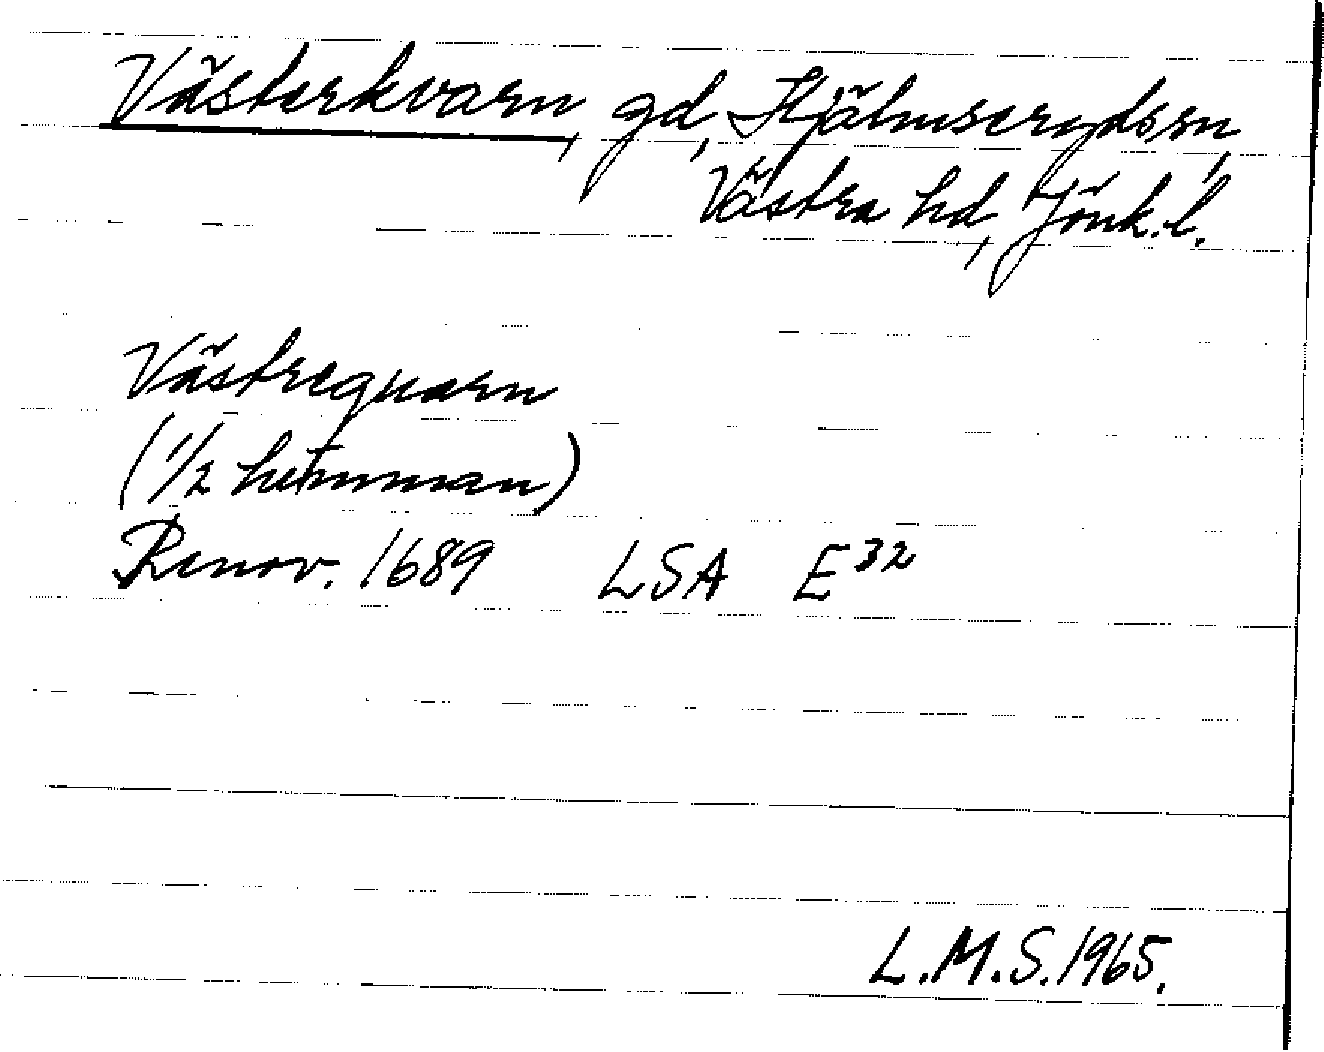 Västerkvarn, gd, Hjälmserydssn,
Västra hd, Jönk.l.
Västrequarn
(1/2 hemman)
Renov. 1689 LSA E³²
L.M.S. 1965.